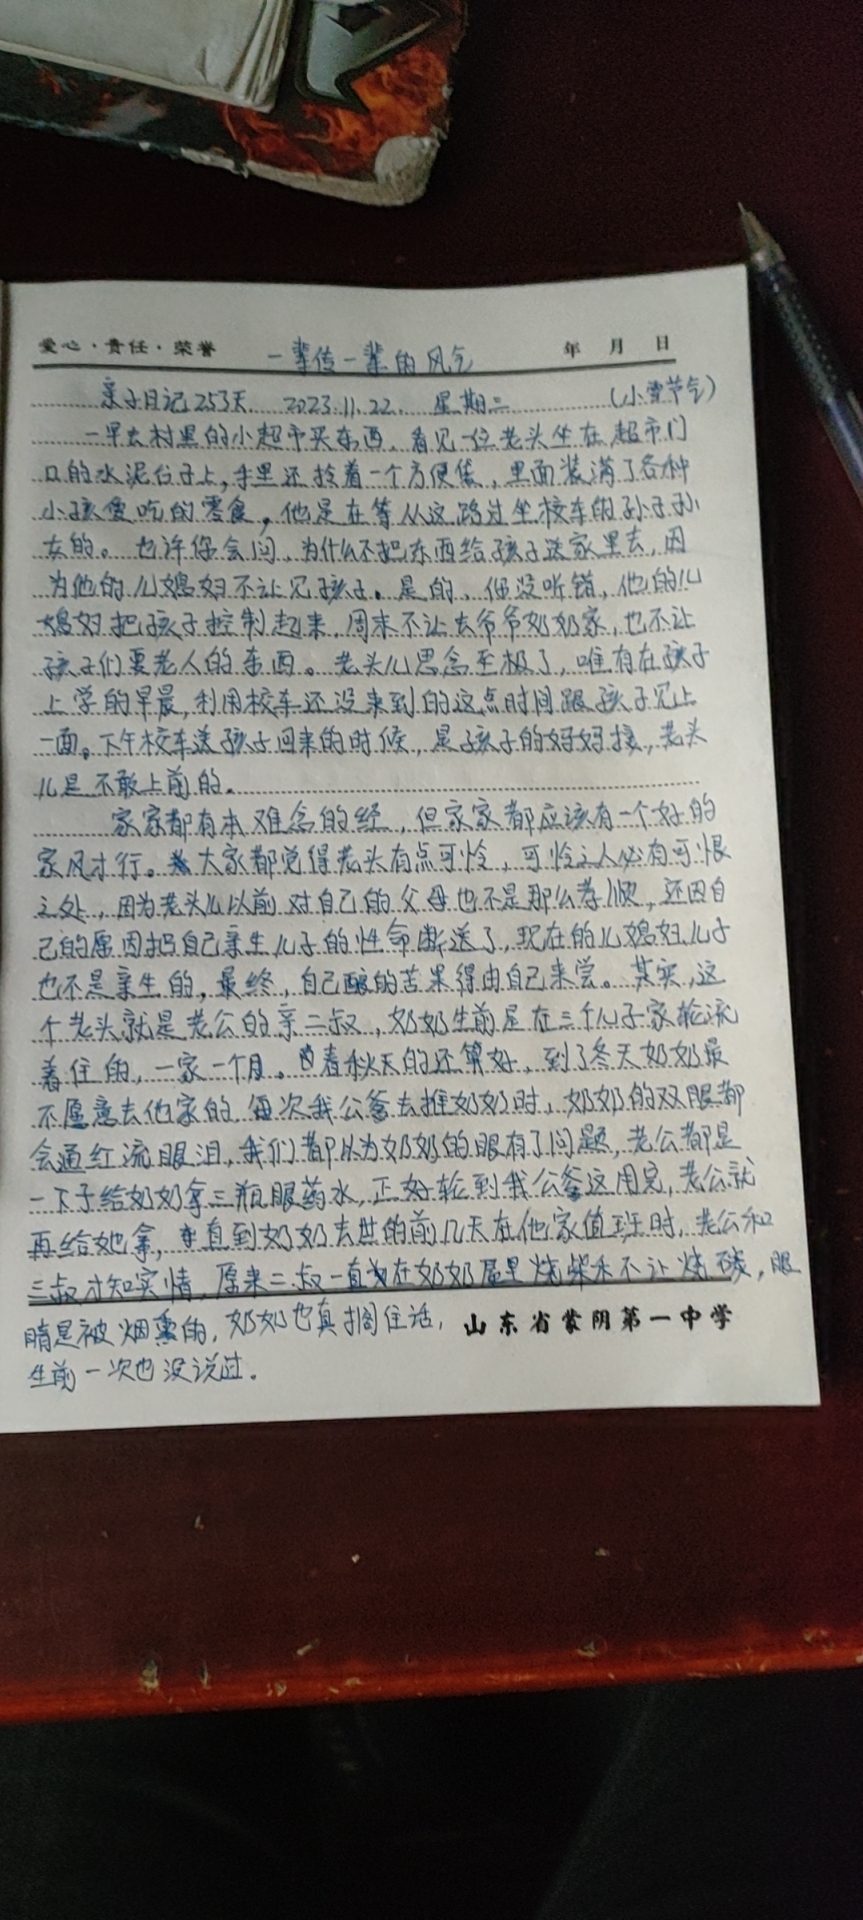 爱心·责任·荣誉 一辈传一辈的风气 年 月 日
亲子日记253天 2023.11.22. 星期二 (小雪节气)
一早去村里的小超市买东西,看见一位老头坐在超市门
口的水泥台子上,手里还拎着一个方便袋,里面装满了各种
小孩爱吃的零食,他是在等从这路过坐校车的孙子孙
女的。也许你会问,为什么不把东西给孩子送家里去,因
为他的儿媳妇不让见孩子。是的,但没听错,他的儿
媳妇把孩子控制起来,周末不让去爷爷奶奶家,也不让
孩子们要老人的东西。老头儿思念至极了,唯有在孩子
上学的早晨,利用校车还没来到的这点时间跟孩子见上
一面。下午校车送孩子回来的时候,是孩子的妈妈接,老头
儿是不敢上前的。
家家都有本难念的经,但家家都应该有一个好的
家风才行。大家都觉得老头有点可怜,可怜之人必有可恨
之处,因为老头儿以前对自己的父母也不是那么孝顺,还因自
己的原因把自己亲生儿子的性命断送了,现在的儿媳妇儿子
也不是亲生的,最终,自己酿的苦果得由自己来尝。其实,这
个老头就是老公的亲二叔,奶奶生前是在三个儿子家轮流
着住的,一家一个月。春秋天的还算好,到了冬天奶奶最
不愿意去他家的,每次我公爹去推奶奶时,奶奶的双眼都
会通红流眼泪,我们都认为奶奶的眼有了问题,老公都是
一下子给奶奶拿三瓶眼药水,正好轮到我公爹这用完,老公就
再给她拿,直到奶奶去世的前几天在他家值班时,老公和
三叔才知实情,原来二叔一直在奶奶屋里烧柴禾不让烧碳,眼
睛是被烟熏的,奶奶也真搁住话,
山东省蒙阴第一中学
生前一次也没说过。